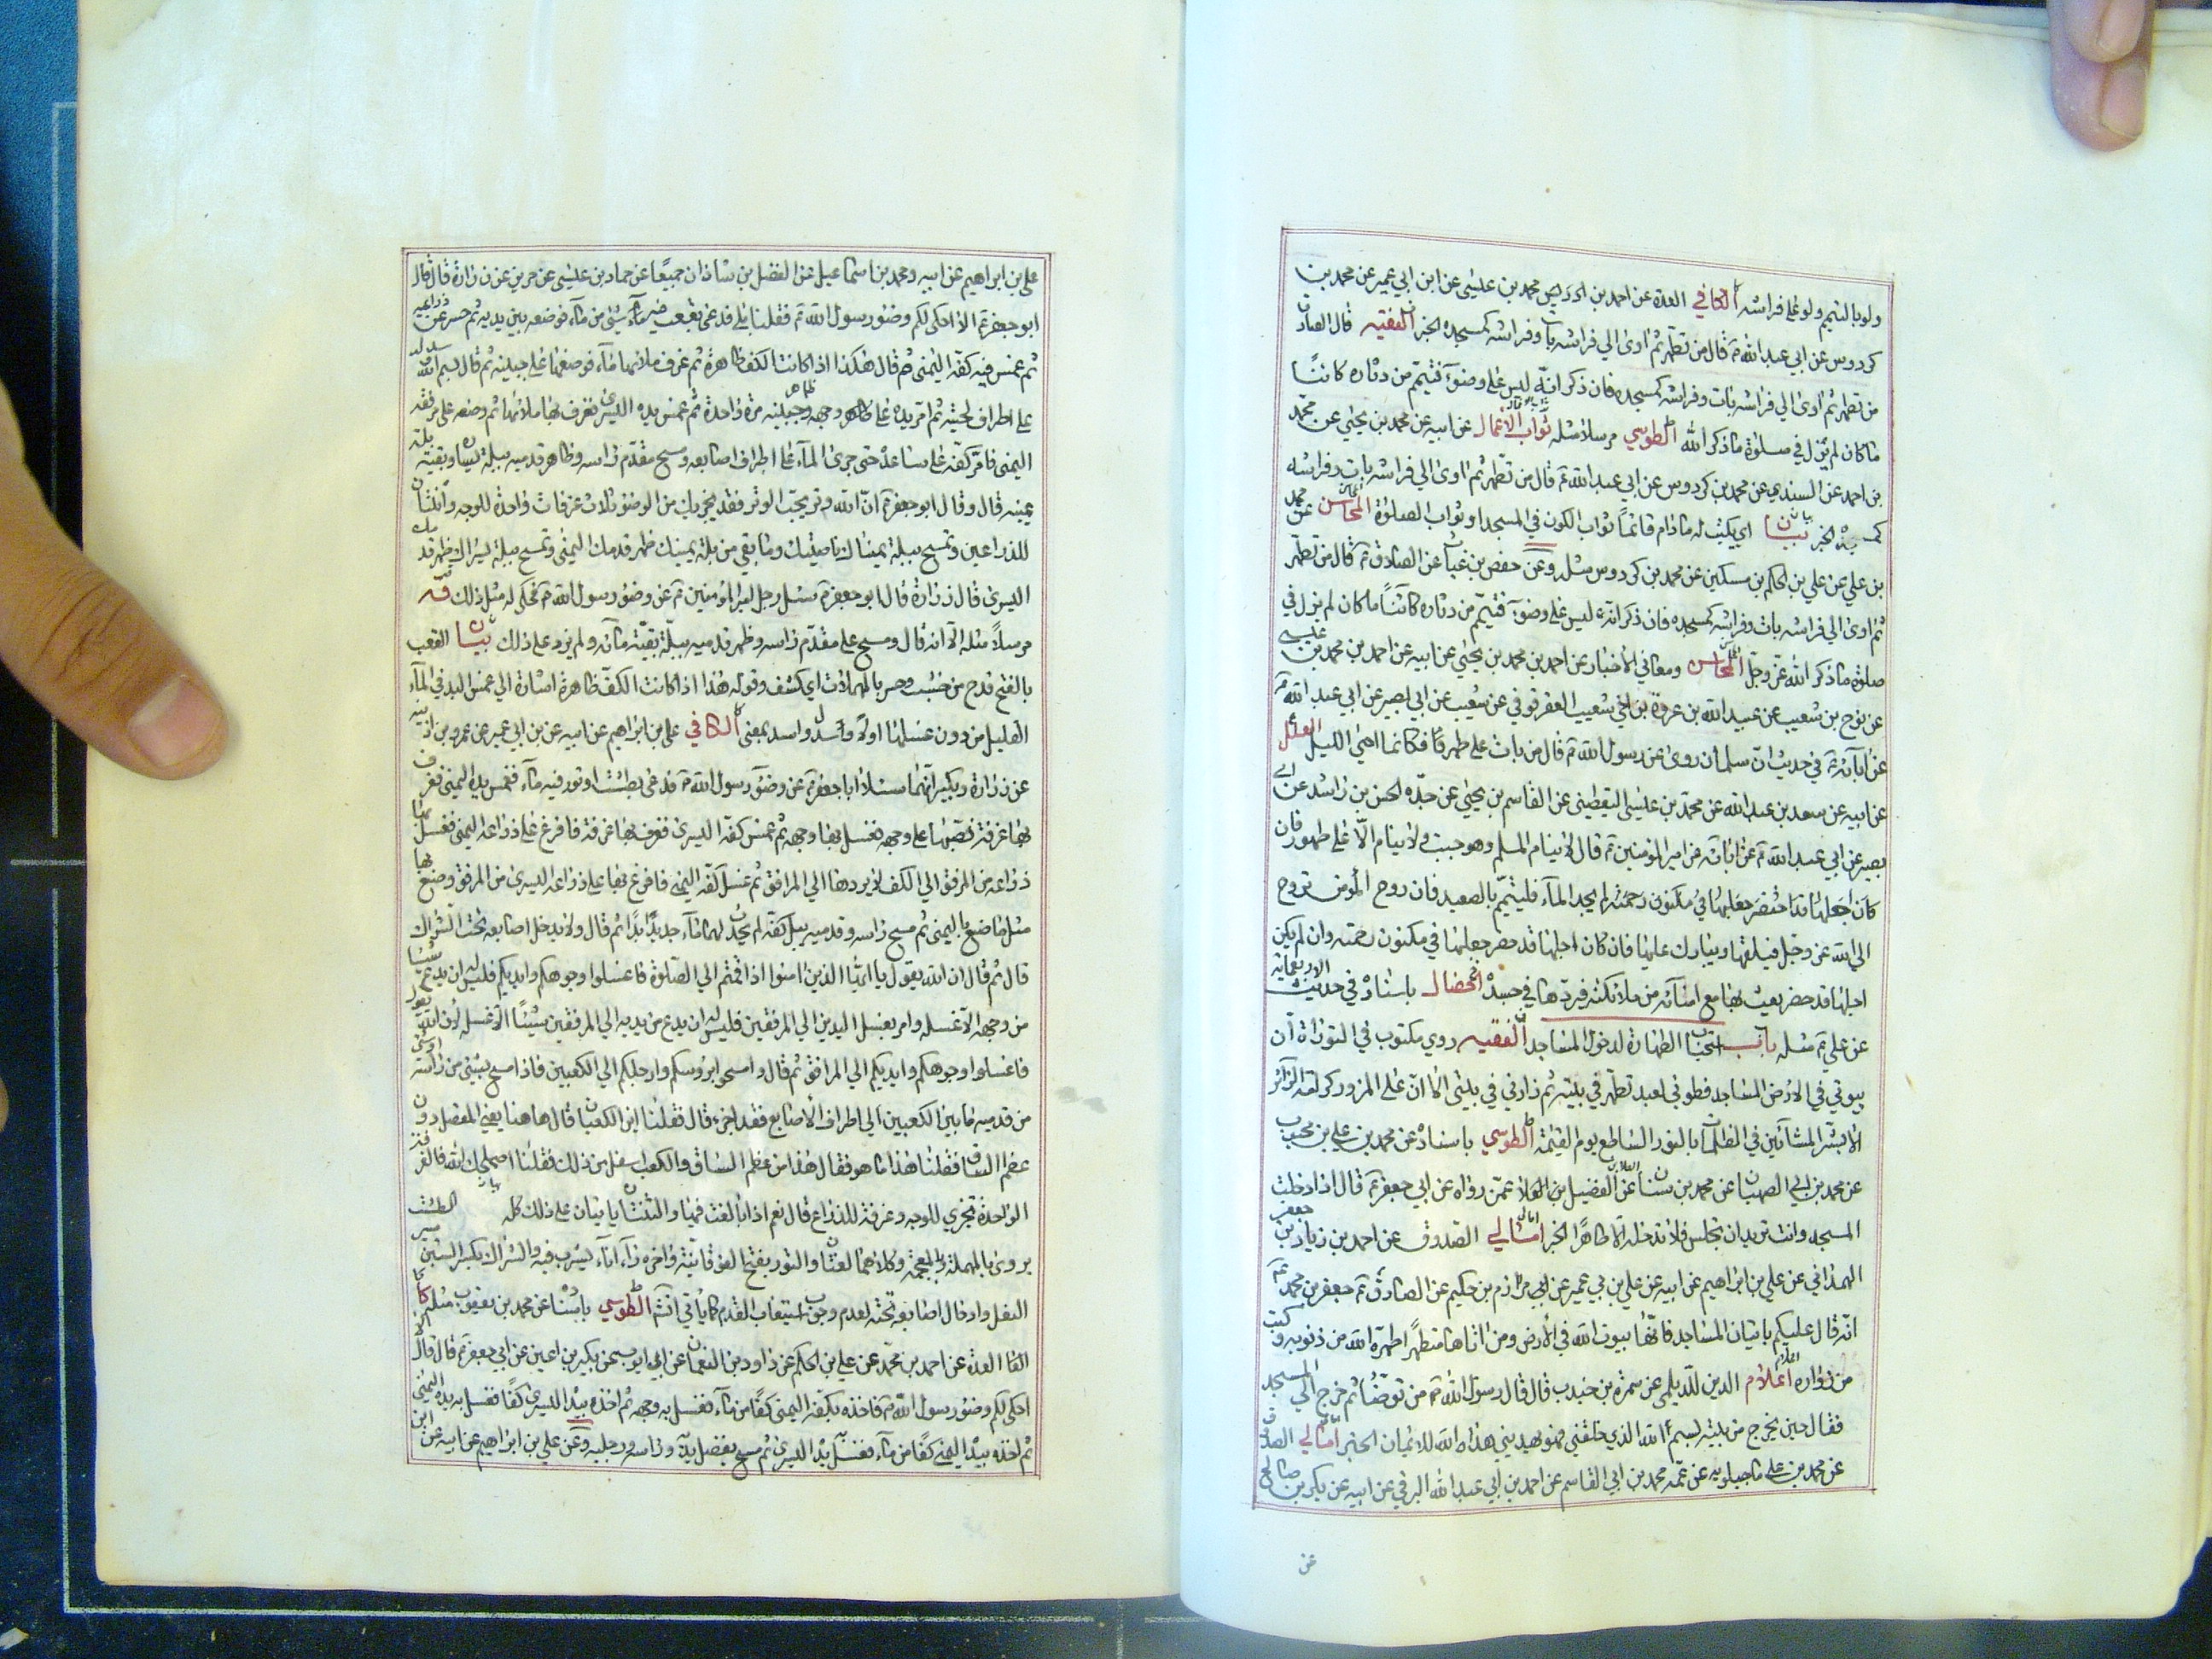 ولو بالتيمم ولو على فراشه الكافي العدة عن احمد بن ادريس محمد بن عليسى عن ابن ابي عمير عن محمد بن
كردوس عن ابي عبد الله ع قال من تطهر ثم اوى الي فراشه بات وفراشه كمسجده الخبر الفقيه قال الصادق
من تطهر ثم اوى الي فراشه بات وفراشه كمسجده فان ذكر انه ليس على وضوء فتيمم من دثاره كائنا
ما كان لم يزل في صلوة ما ذكر الله الطوسي مرسلا مثله ثواب الاعمال عن ابيه عن محمد بن يحيي عن محمد
بن احمد عن السندي عن محمد بن كردوس عن ابي عبد الله ع قال من تطهر ثم اوى الي فراشه بات وفراشه
كمسجده الخبر بيان اي يكتب له مادام قائما ثواب الكون في المسجد او ثواب الصلوة المحاسن عن محمد
بن علي عن علي بن الحكم بن مسكين عن محمد بن كردوس مثله وعن حفص بن غياث عن الصادق ع قال من تطهر
ثم اوى الي فراشه بات وفراشه كمسجده فان ذكر انه ليس على وضوء فتيمم من دثاره كائنا ما كان لم يزل في
صلوة ما ذكر الله عز وجل المجالس ومعاني الاخبار عن احمد بن محمد بن يحيي عن ابيه عن احمد بن محمد بن عيسى
عن نوح بن شعيب عن عبيد الله بن عروة بن اخي شعيب العقرقوفي عن شعيب عن ابي بصير عن ابي عبد الله ع
عن ابائه ع في حديث ان سلمان روى عن رسول الله ص قال من بات على طهر فكانما احيى الليل العلل
عن ابيه عن سعد بن عبد الله عن محمد بن عيسى اليقطيني عن القاسم بن يحيي عن جده الحسن بن راشد عن ابي
بصير عن ابي عبد الله ع عن ابائه عن امير المؤمنين ع قال لا ينام المسلم وهو جنب ولا ينام الا على طهور فان
كان اجلها قد احتضر جعلها في مكنون رحمته لم يجد الماء فليتيمم بالصعيد فان روح المؤمن تروح
الي الله عز وجل فيلقها ويبارك عليها فان كان اجلها قد حضر جعلها في مكنون رحمته وان لم يكن
اجلها قد حضر بعث بها مع امنائه من ملائكته فيردها في جسده الخصال باسناده في حديث الاربعمائة
عن علي ع مثله باب استحباب الطهارة لدخول المساجد الفقيه روي مكتوب في التوراة ان
بيوتي في الارض المساجد فطوبى لعبد تطهر في بيته ثم زارني في بيتي الا ان على المزور كرامة الزائر
الا بشر المشائين في الظلمات بالنور الساطع يوم القيمة الطوسي باسناده عن محمد بن علي بن محبوب
عن محمد بن ابي الصهبان عن محمد بن سنان عن الفضيل بن العلاء عمن رواه عن ابي جعفر ع قال اذا دخلت
المسجد وانت تريد ان تجلس فلا تدخله الا طاهرا الخبر امالي الصدوق عن احمد بن زياد بن جعفر
الهمداني عن علي بن ابراهيم عن ابيه عن علي بن بي عمير عن ابي مرازم بن حكيم عن الصادق ع جعفر بن محمد ع
انه قال عليكم باتيان المساجد فانها بيوت الله في الارض ومن اتاها متطهرا اطهره الله من ذنوبه وكتب
من زواره اعلام الدين للديلمي عن سمرة بن جندب قال قال رسول الله ص من توضا ثم خرج الي المسجد
فقال حين يخرج من بيته بسم الله الذي خلقني فهو يهديني هداه الله للايمان الخبر امالي الصدوق
عن محمد بن علي ماجيلويه عن عمه محمد بن ابي القاسم عن احمد بن ابي عبد الله البرقي عن ابيه عن بكر بن صالح
عن
علي بن ابراهيم عن ابيه ومحمد بن اسماعيل عن الفضل بن شاذان جميعا عن حماد بن عليسى عن حريز عن زرارة قال قال
ابو جعفر ع الا احكى لكم وضوء رسول الله ص فقلنا بلى فدعى بقعب فيه ماء شئ من ماء فوضعه بين يديه ثم حسر عن ذراعيه
ثم غمس فيه كفه اليمنى ثم قال هكذا اذا كانت الكف طاهرة ثم غرف ملاها ماء فوضعها على جبينه ثم قال بسم الله وسدله
على اطراف لحيته ثم امر يده على وجهه وظاهر جبينه مرة واحدة ثم غمس يده اليسرى فغرف بها ملاها ثم وضعه على مرفقه
اليمنى فامر كفه على ساعده حتى جرى الماء على اطراف اصابعه ومسح مقدم راسه وظاهر قدميه ببلة يساره وبقية بلة
يمينه قال وقال ابو جعفر ع ان الله وتر يحب الوتر فقد يجزيك من الوضوء ثلاث غرفات واحدة للوجه واثنتان
للذراعين وتمسح ببلة يمناك ناصيتك وما بقي من بلة يمينك ظهر قدمك اليمنى وتمسح ببلة يسراك ظهر قدمك
اليسرى قال زرارة قال ابو جعفر ع سئل رجل امير المؤمنين ع عن وضوء رسول الله ص فحكى له مثل ذلك فقيه
مرسلا مثله الا انه قال ومسح على مقدم راسه وظهر قدميه ببلة بقية مائه ولم يزد على ذلك بيان القعب
بالفتح قدح من خشب وحسر بالمهملات اي كشف وقوله هذا اذا كانت الكف طاهرة اشارة الي غمس اليد في الماء
القليل من دون غسلها اولا وسدل واسدل بمعنى الكافي علي بن ابراهيم عن ابيه عن بن ابي عمير عن عمرو بن اذينه
عن زرارة وبكير انهما سالا ابا جعفر ع عن وضوء رسول الله ص فدعى بطشت او تور فيه ماء فغمس يده اليمنى فغرف
بها غرفة فصبها على وجهه فغسل بها وجهه ثم غمس كفه اليسرى فغرف بها غرفة فافرغ على ذراعه اليمنى فغسل بها
ذراعه من المرفق الي الكف لا يردها الي المرافق ثم غسل كفه اليمنى فافرغ بها على ذراعه اليسرى من المرفق وصنع بها
مثل ما صنع باليمنى ثم مسح راسه وقدميه ببلل كفه لم يحدث لهما ماء جديدا ثم قال ولا يدخل اصابعه تحت الشراك
قال ثم قال ان الله يقول يا ايها الذين امنوا اذا قمتم الي الصلوة فاغسلوا وجوهكم وايديكم فليس له ان يدع شيئا
من وجهه الا غسله وامر بغسل اليدين الي المرفقين فليس له ان يدع من يديه الي المرفقين شيئا الا غسله لان الله يقول
فاغسلوا وجوهكم وايديكم الي المرافق ثم قال وامسحوا برؤسكم وارجلكم الي الكعبين فاذا مسح بشئ من راسه او بشئ
من قدميه ما بين الكعبين الي اطراف الاصابع فقد اجزءه قال فقلنا اين الكعبان قال ها هنا يعني المفصل دون
عظم الساق فقلنا هذا ما هو فقال هذا من عظم الساق والكعب اسفل من ذلك فقلنا اصلحك الله فالغرفة
الواحدة تجزي للوجه وغرفة للذراع قال نعم اذا بالغت فيها والثنتان ياتيان على ذلك كله بيان الطشت
يروى بالمهملة والمعجمة وكلاهما لغتان والتور بفتح الفوقانية واخره راء اناء يشرب فيه والشراك بكسر الشين سير
النعل وادخال اصابعه تحته لعدم وجوب استيعاب القدم كما ياتي انشم الطوسي باسناده عن محمد بن يعقوب مثله الكافي
العدة عن احمد بن محمد عن علي بن الحكم عن داود بن النعمان عن ابي ايوب عن بكير بن اعين عن ابي جعفر ع قال قال الا
احكى لكم وضوء رسول الله ص فاخذ بكفه اليمنى كفا من ماء فغسل به وجهه ثم اخذ بيده اليسرى كفا فغسل به يده اليمنى
ثم اخذ بيده اليمنى كفا من ماء فغسل يده اليسرى ثم مسح بفضل يديه وراسه ورجليه وعن علي بن ابراهيم عن ابيه عن ابن